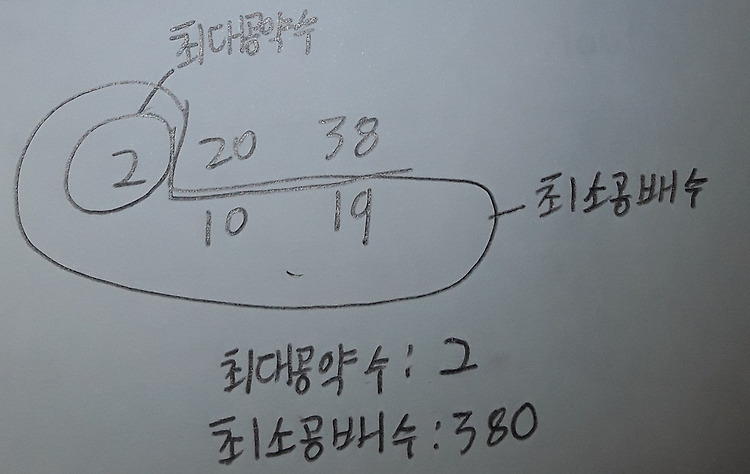 최대공약수
2 20 38
10 19
최소공배수
최대공약수: 2
최소공배수: 380